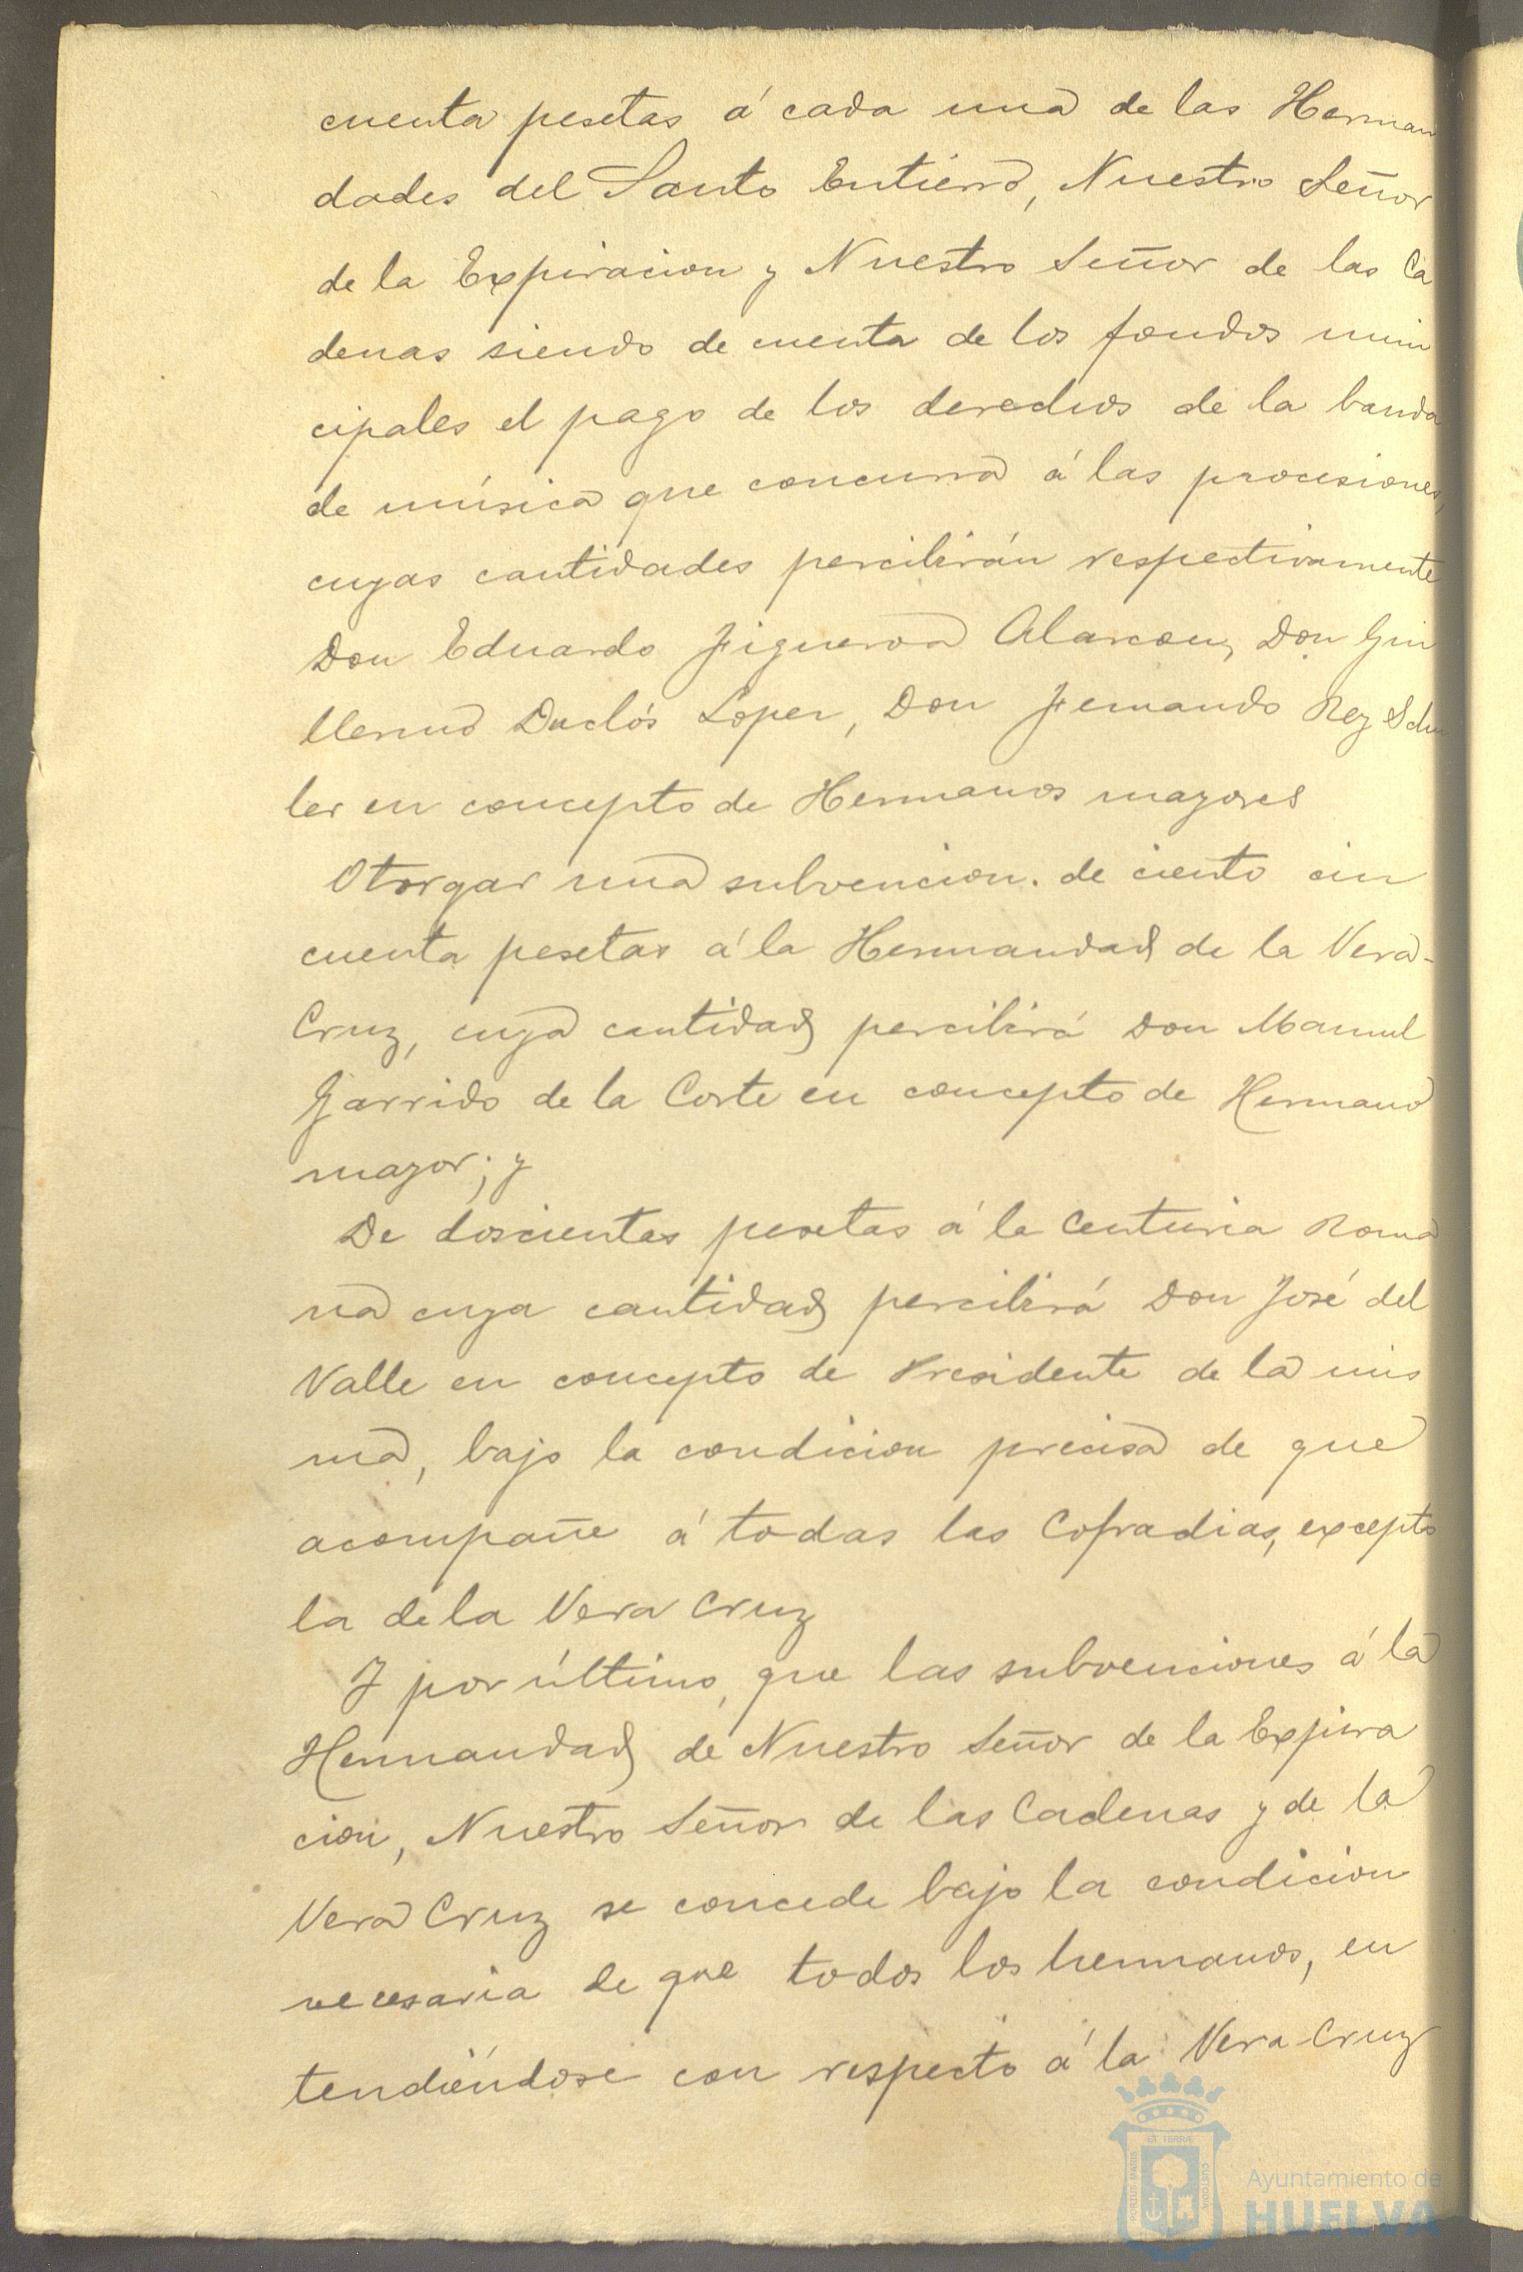 cuenta pesetas á cada una de las Herman
dades del Santo Entierro, Nuestro Señor
de la Expiracion y Nuestro Señor de las Ca
denas siendo de cuenta de los fondos muni
cipales el pago de los derechos de la banda
de música que concurra á las procesiones,
cuyas cantidades percibirán respectivamente
Don Eduardo Figueroa Alarcon, Don Gui
llermo Duclós Lopez, Don Fernando Rey Schu
ler en concepto de Hermanos mayores
Otorgar una subvencion. de ciento cin
cuenta pesetas á la Hermandad de la Vera-
Cruz, cuya cantidad percibirá Don Manuel
Garrido de la Corte en concepto de Hermano
mayor; y
De doscientas pesetas á la Centuria Roma
na cuya cantidad percibirá Don José del
Valle en concepto de Presidente de la mis
ma, bajo la condicion precisa de que
acompañe á todas las Cofradias, excepto
la de la Vera Cruz
Y por último, que las subvenciones á la
Hermandad de Nuestro Señor de la Expira
cion, Nuestro Señor de las Cadenas y de la
Vera Cruz se concede bajo la condicion
necesaria de que todos los hermanos, en
tendiéndose con respecto á la Vera-Cruz
PORTUS MARIS
ET TERRÆ
CUSTODIA
Ayuntamiento de
HUELVA